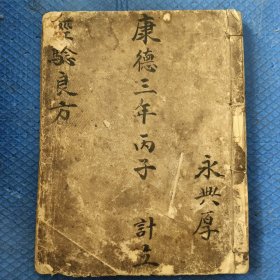 永興厚
康德三年丙子 計立
經驗良方